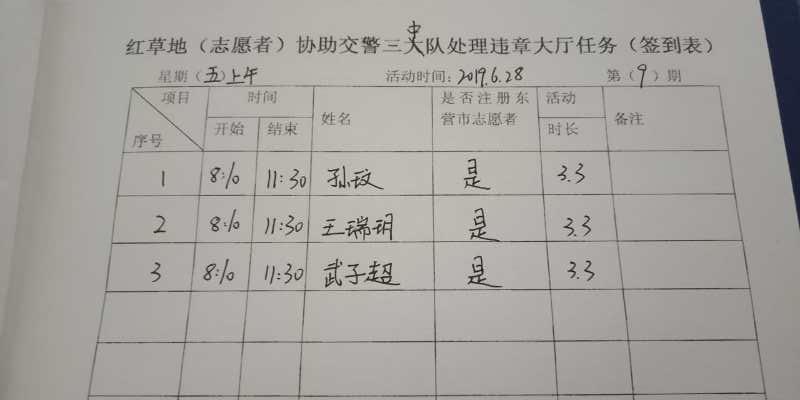 红草地（志愿者）协助交警三中队处理违章大厅任务（签到表）
星期（五）上午 活动时间：2019.6.28 第（9）期
项目 序号 时间 姓名 是否注册东营市志愿者 活动时长 备注
开始 结束
1 8:10 11:30 孙玟 是 3.3
2 8:10 11:30 王瑞玥 是 3.3
3 8:10 11:30 武子超 是 3.3